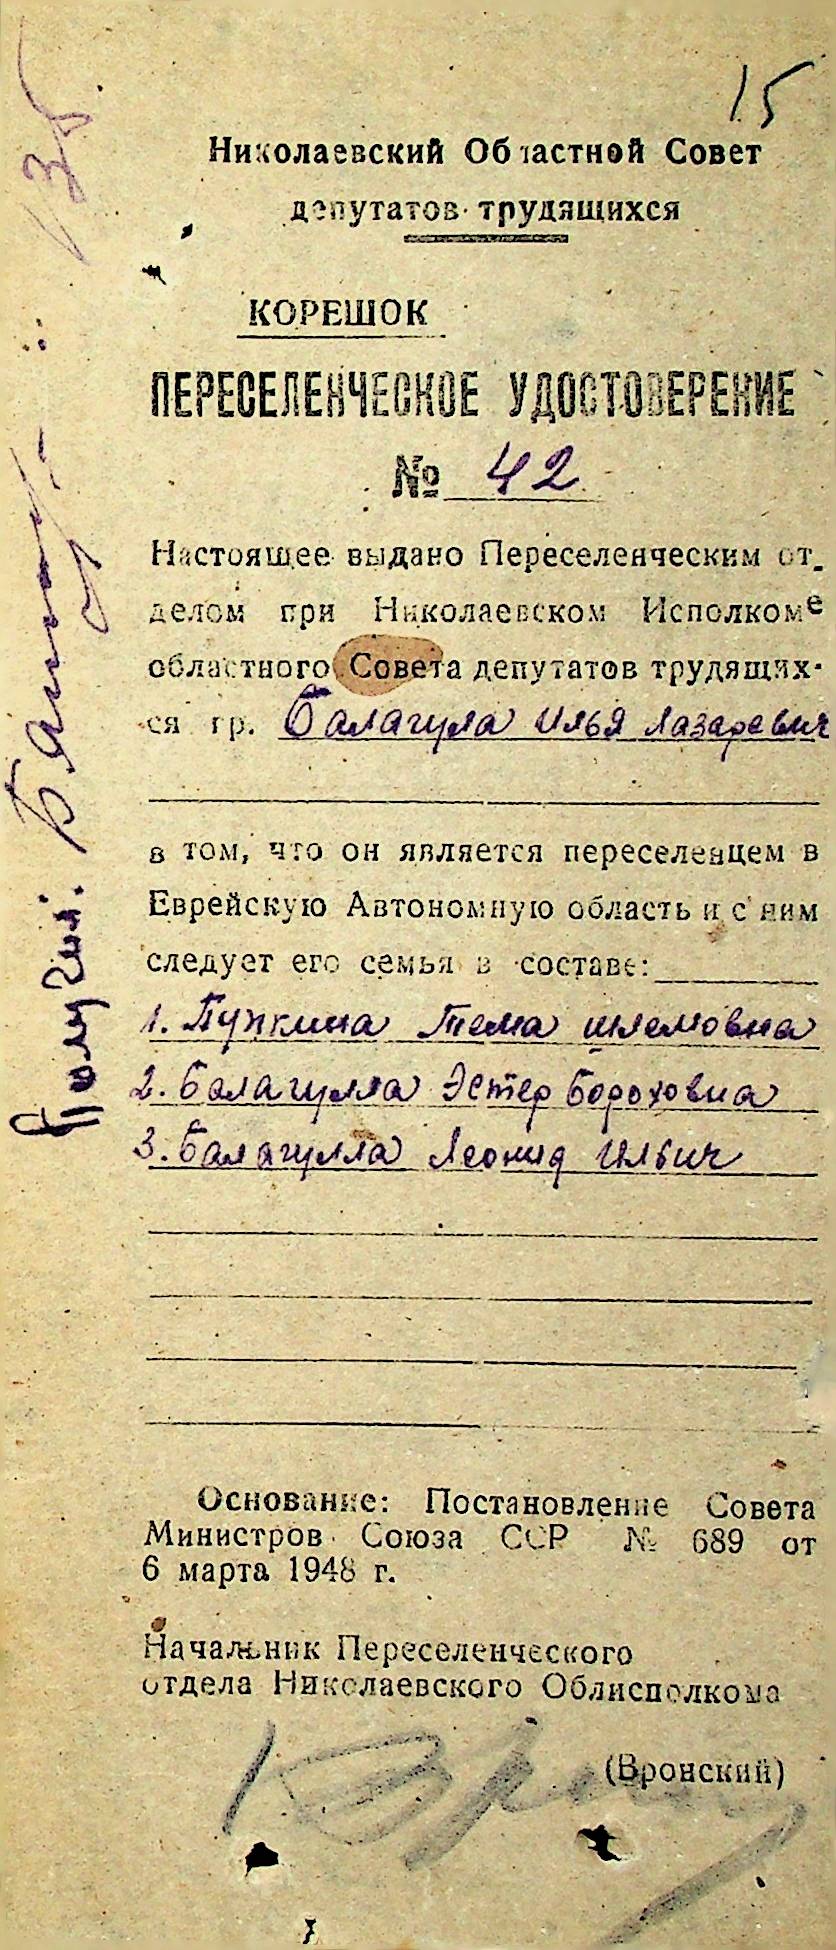 15
Николаевский Областной Совет
депутатов трудящихся
КОРЕШОК
ПЕРЕСЕЛЕНЧЕСКОЕ УДОСТОВЕРЕНИЕ
№ 42
Настоящее выдано Переселенческим от-
делом при Николаевском Исполкоме
областного Совета депутатов трудящих-
ся гр. Балагула Илья Лазаревич
в том, что он является переселенцем в
Еврейскую Автономную область и с ним
следует его семья в составе:
1. Пупкина Тема Шлемовна
2. Балагулла Эстер Бороховна
3. Балагулла Леонид Ильич
Основание: Постановление Совета
Министров Союза ССР № 689 от
6 марта 1948 г.
Начальник Переселенческого
отдела Николаевского Облисполкома
(Вронский)
Получил: